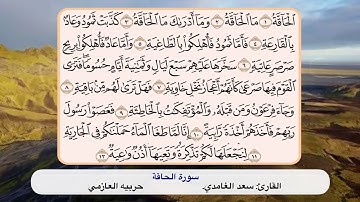 ٱلۡحَآقَّةُ ١ مَا ٱلۡحَآقَّةُ ٢ وَمَآ أَدۡرَىٰكَ مَا ٱلۡحَآقَّةُ ٣ كَذَّبَتۡ ثَمُودُ وَعَادُۢ
بِٱلۡقَارِعَةِ ٤ فَأَمَّا ثَمُودُ فَأُهۡلِكُواْ بِٱلطَّاغِيَةِ ٥ وَأَمَّا عَادٞ فَأُهۡلِكُواْ بِرِيحٖ
صَرۡصَرٍ عَاتِيَةٖ ٦ سَخَّرَهَا عَلَيۡهِمۡ سَبۡعَ لَيَالٖ وَثَمَٰنِيَةَ أَيَّامٍ حُسُومٗاۖ فَتَرَى
ٱلۡقَوۡمَ فِيهَا صَرۡعَىٰ كَأَنَّهُمۡ أَعۡجَازُ نَخۡلٍ خَاوِيَةٖ ٧ فَهَلۡ تَرَىٰ لَهُم مِّنۢ بَاقِيَةٖ ٨
وَجَآءَ فِرۡعَوۡنُ وَمَن قَبۡلَهُۥ وَٱلۡمُؤۡتَفِكَٰتُ بِٱلۡخَاطِئَةِ ٩ فَعَصَوۡاْ رَسُولَ
رَبِّهِمۡ فَأَخَذَهُمۡ أَخۡذَةٗ رَّابِيَةً ١٠ إِنَّا لَمَّا طَغَا ٱلۡمَآءُ حَمَلۡنَٰكُمۡ فِي ٱلۡجَارِيَةِ
١١ لِنَجۡعَلَهَا لَكُمۡ تَذۡكِرَةٗ وَتَعِيَهَآ أُذُنٞ وَٰعِيَةٞ ١٢
سورة الحاقة
القارئ: سعد الغامدي. حربيه العازمي